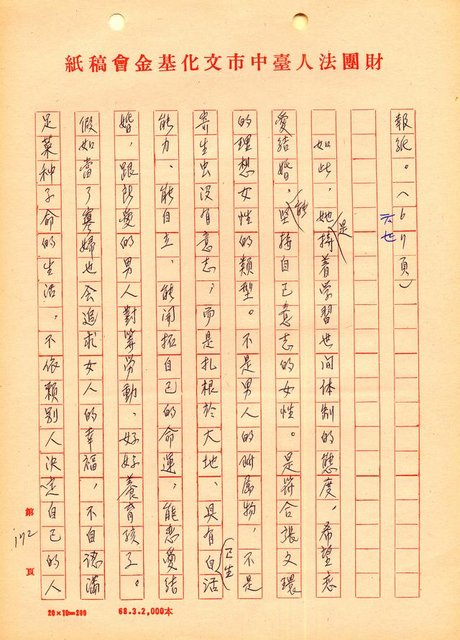 財團法人臺中市文化基金會稿紙
報紙。(67頁)
如此，她是持着学習世间体制的態度。希望恋
愛結婚，能坚持自己意志的女性。是符合張文環
的理想女性的類型。不是男人的附属物，不是
寄生虫沒有意志，而是扎根於大地、具有自己生活
能力、能自立、能開拓自己的命運，能恋愛結
婚，跟所愛的男人對等労動、好好養育孩子。
假如當了寡婦也会追求女人的幸福，不自認滿
足菜种子命的生活，不依賴別人決定自己的人
第 172 頁
20×10=200
68.3.2,000本